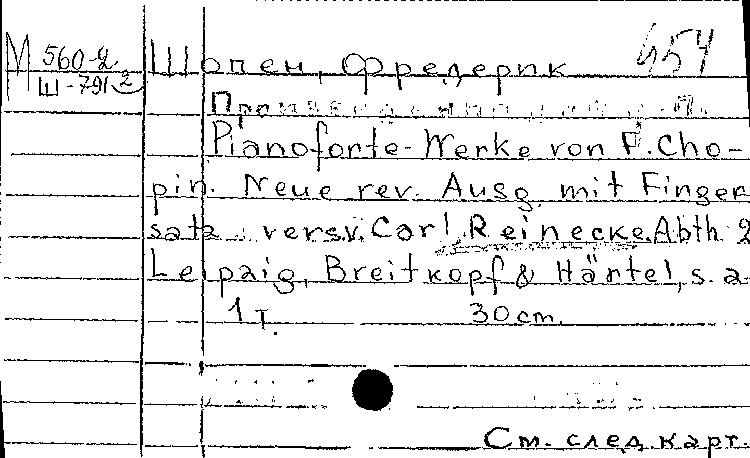 М 560-2
Ш-791²
654
Шопен, Фредерик
Произведения для ф.-п.
Pianoforte-Werke von F. Cho-
pin. Neue rev. Ausg. mit Finger
satz vers. v. Carl Reinecke. Abth. 2
Leipzig, Breitkopf & Härtel, s. a.
1 т. 30 cm.
См. след. карт.